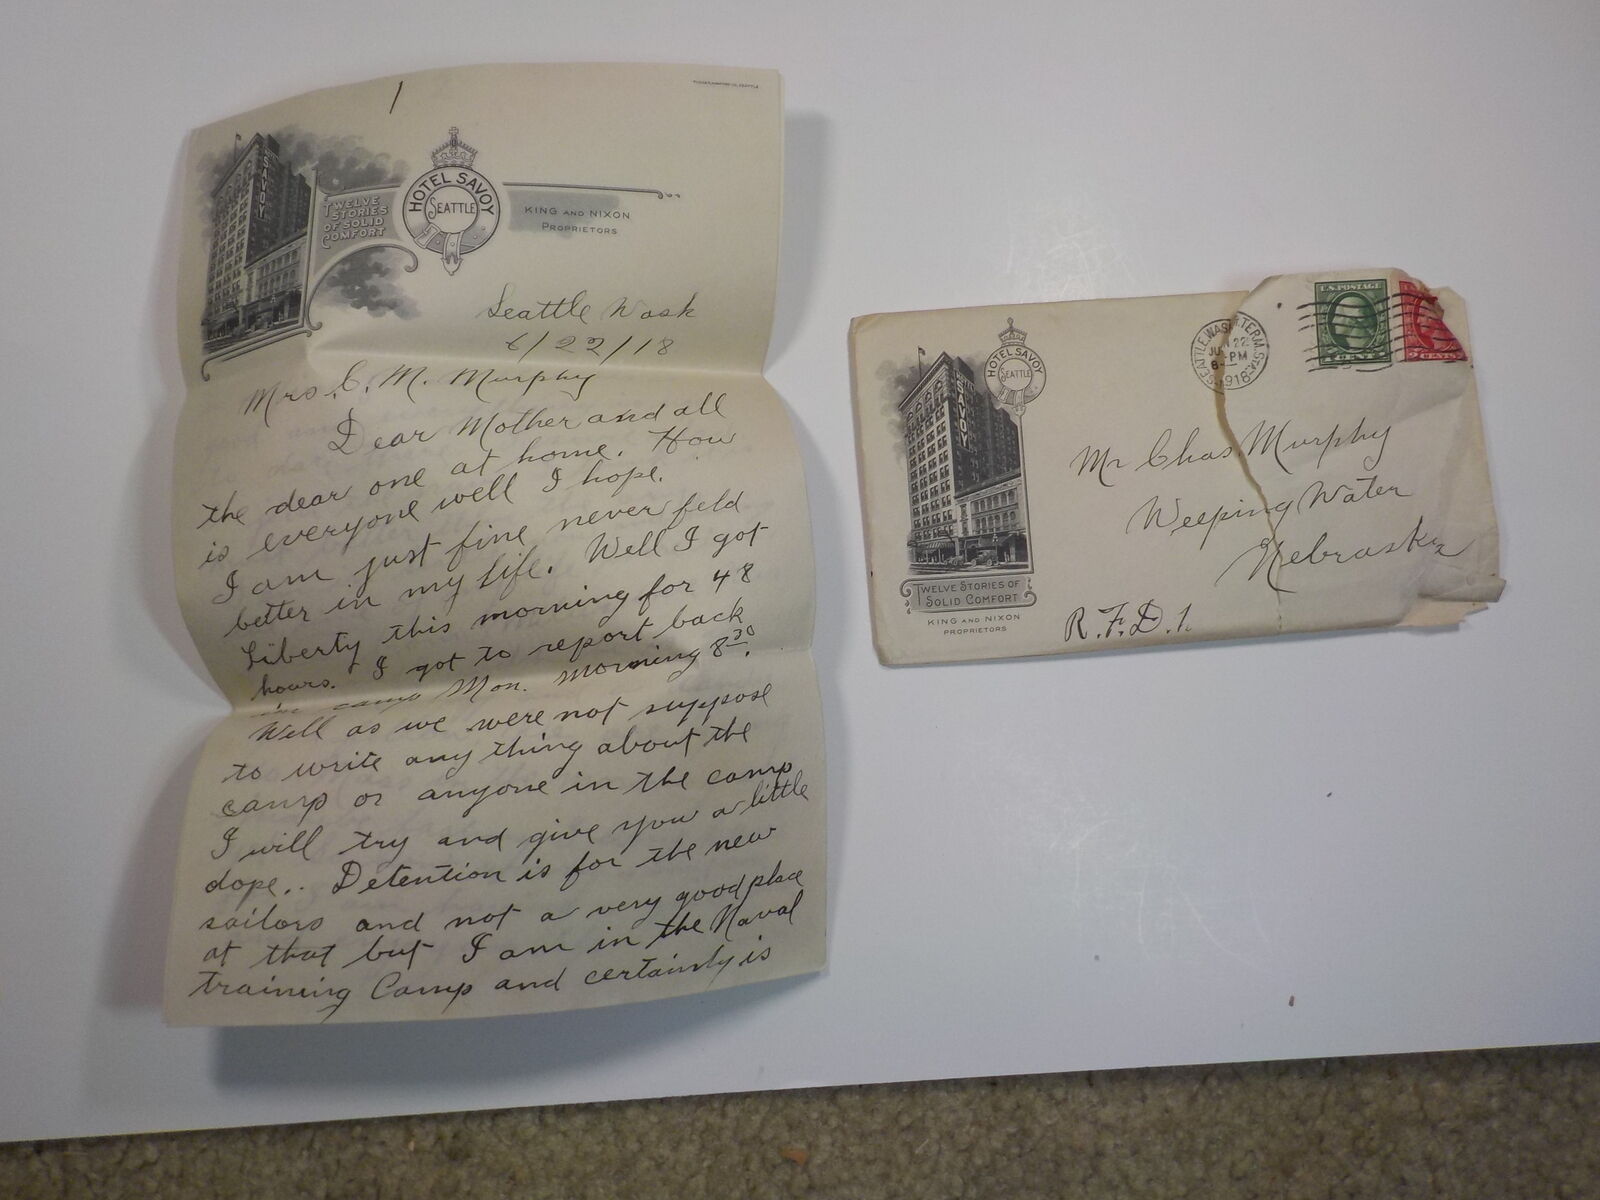 1
SAVOY
TWELVE
STORIES
OF SOLID
COMFORT
HOTEL SAVOY
SEATTLE
KING AND NIXON
PROPRIETORS
Seattle Wash
6/22/18
Mrs. C. M. Murphy
Dear Mother and all
the dear one at home. How
is everyone well I hope.
I am just fine never feld
better in my life. Well I got
liberty this morning for 48
hours. I got to report back
in camp Mon. morning 8 30.
Well as we were not suppose
to write any thing about the
camp or anyone in the camp
I will try and give you a little
dope.. Detention is for the new
sailors and not a very good place
at that but I am in the Naval
training Camp and certainly is
HOTEL SAVOY
SEATTLE
SAVOY
TWELVE STORIES OF
SOLID COMFORT
KING AND NIXON
PROPRIETORS
SEATTLE, WASH. TERM. STA.
JUN 22
8 - PM
1918
U.S. POSTAGE
1 CENT 1
2 CENTS
Mr Chas. Murphy
Weeping Water
Nebraska
R.F.D.1.